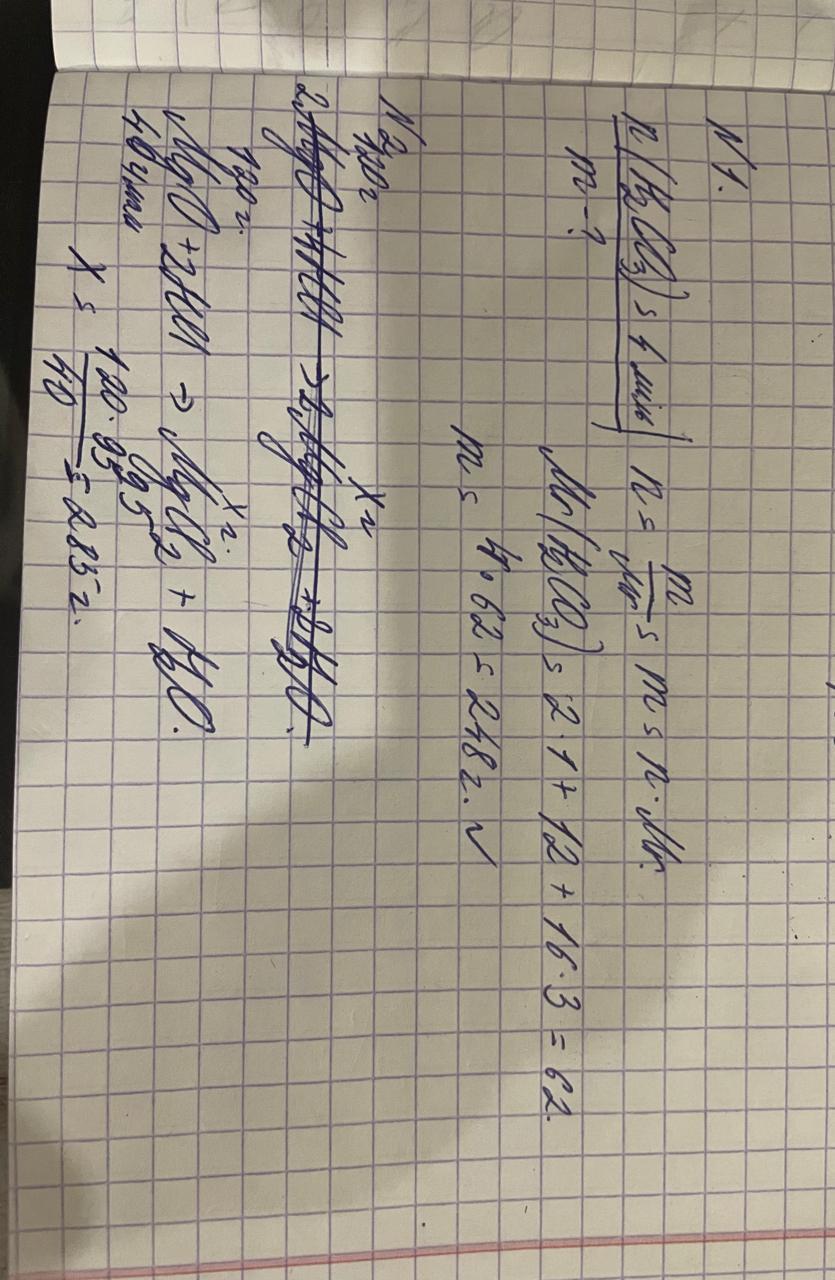 N 1.
n(H₂CO₃) = 4 моль
n = m/Mr = m = n · Mr.
m - ?
Mr(H₂CO₃) = 2·1 + 12 + 16·3 = 62.
m = 4·62 = 248 г. ✓
N 2
120г        X г
2MgO + 4HCl → 2MgCl₂ + 2H₂O.
120 г.        X г.
MgO + 2HCl → MgCl₂ + H₂O.
40        95
X = 120·95/40 = 285 г.